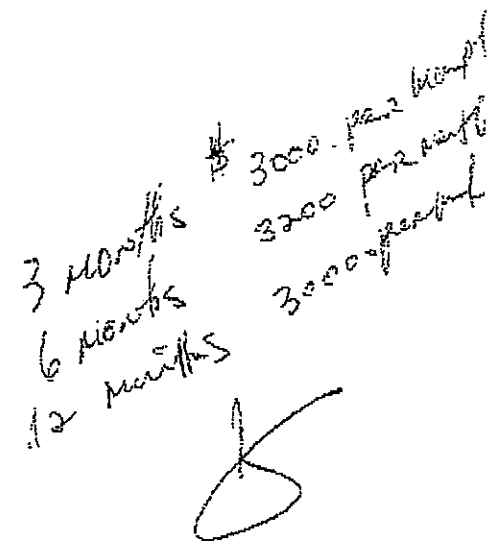 3 Months $ 3000. per month
6 Months 3200 per month
12 Months 3000 per month